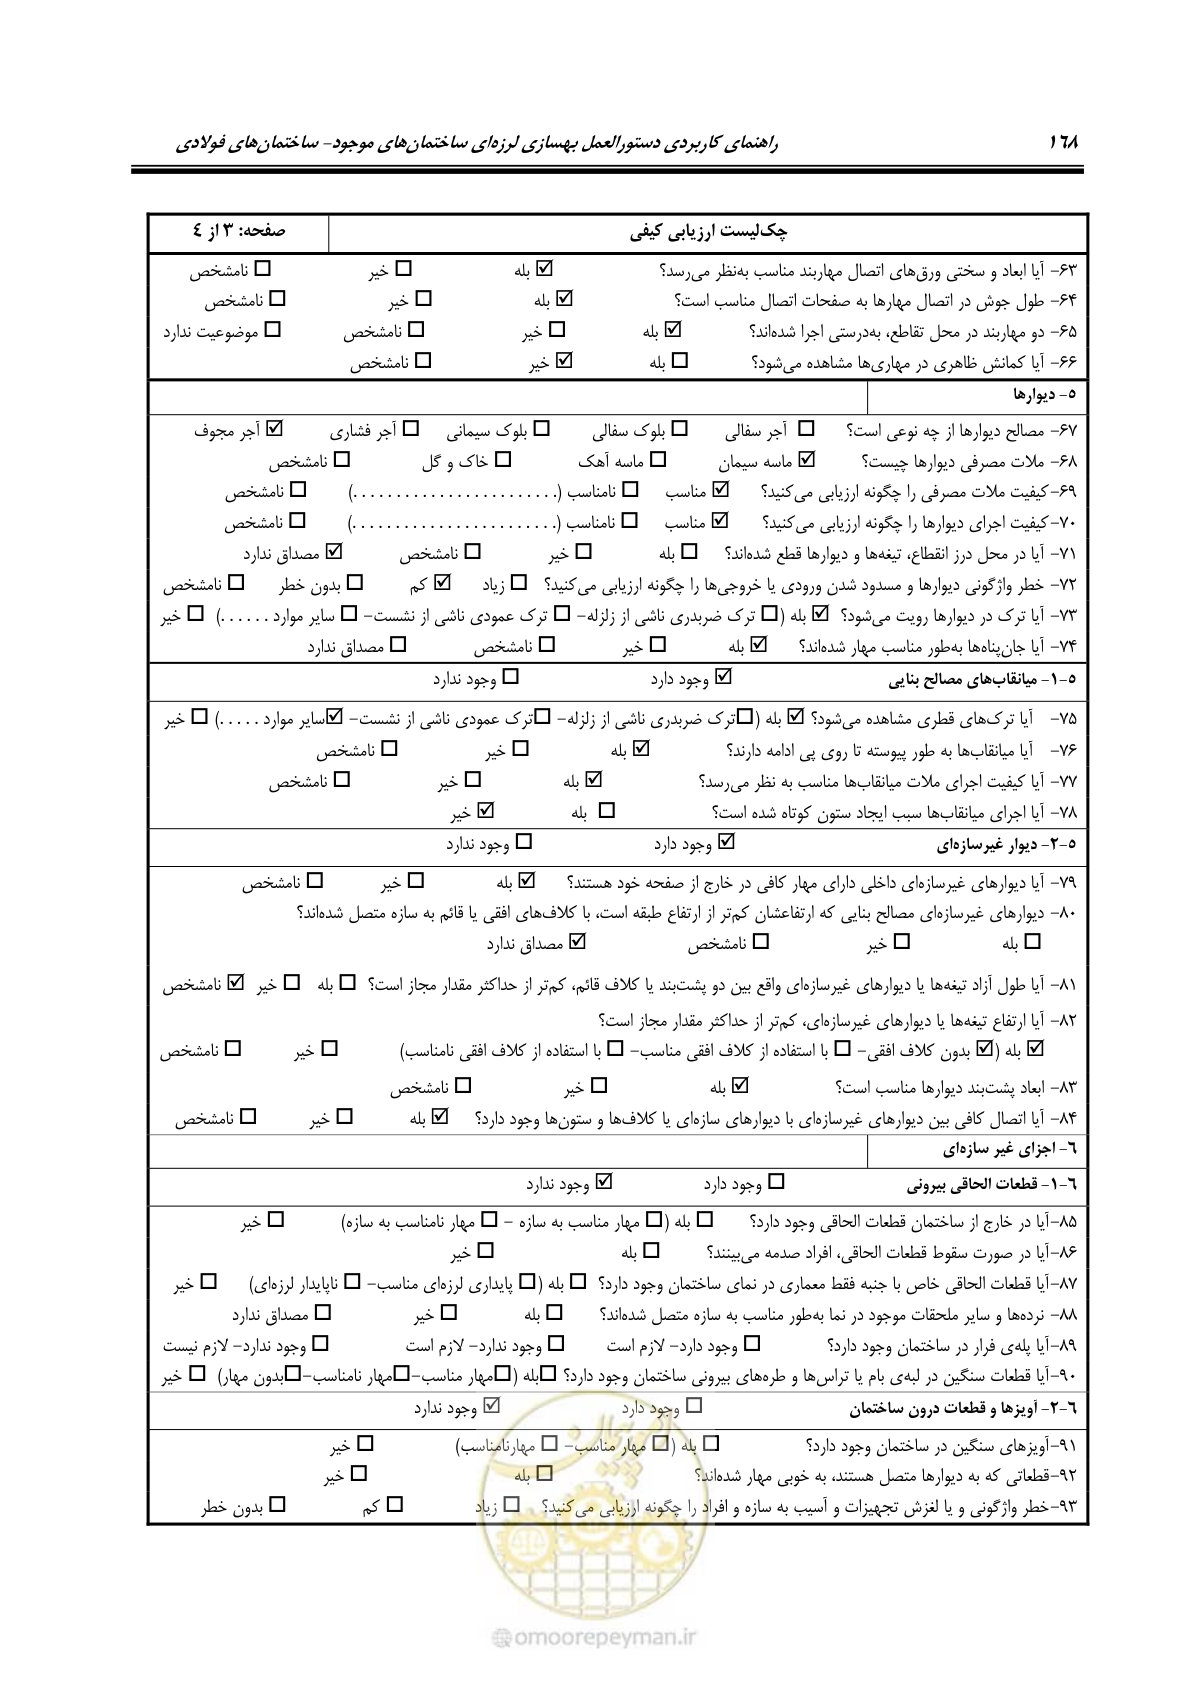 ۱۶۸ راهنمای کاربردی دستورالعمل بهسازی لرزه‌ای ساختمان‌های موجود- ساختمان‌های فولادی
چک‌لیست ارزیابی کیفی صفحه: ۳ از ٤
۶۳- آیا ابعاد و سختی ورق‌های اتصال مهاربند مناسب به‌نظر می‌رسد؟ ☑ بله ☐ خیر ☐ نامشخص
۶۴- طول جوش در اتصال مهارها به صفحات اتصال مناسب است؟ ☑ بله ☐ خیر ☐ نامشخص
۶۵- دو مهاربند در محل تقاطع، به‌درستی اجرا شده‌اند؟ ☑ بله ☐ خیر ☐ نامشخص ☐ موضوعیت ندارد
۶۶- آیا کمانش ظاهری در مهاری‌ها مشاهده می‌شود؟ ☐ بله ☑ خیر ☐ نامشخص
٥- دیوارها
۶۷- مصالح دیوارها از چه نوعی است؟ ☐ آجر سفالی ☐ بلوک سفالی ☐ بلوک سیمانی ☐ آجر فشاری ☑ آجر مجوف
۶۸- ملات مصرفی دیوارها چیست؟ ☑ ماسه سیمان ☐ ماسه آهک ☐ خاک و گل ☐ نامشخص
۶۹-کیفیت ملات مصرفی را چگونه ارزیابی می‌کنید؟ ☑ مناسب ☐ نامناسب (........................) ☐ نامشخص
۷۰-کیفیت اجرای دیوارها را چگونه ارزیابی می‌کنید؟ ☑ مناسب ☐ نامناسب (........................) ☐ نامشخص
۷۱- آیا در محل درز انقطاع، تیغه‌ها و دیوارها قطع شده‌اند؟ ☐ بله ☐ خیر ☐ نامشخص ☑ مصداق ندارد
۷۲- خطر واژگونی دیوارها و مسدود شدن ورودی یا خروجی‌ها را چگونه ارزیابی می‌کنید؟ ☐ زیاد ☑ کم ☐ بدون خطر ☐ نامشخص
۷۳- آیا ترک در دیوارها رویت می‌شود؟ ☑ بله (☐ ترک ضربدری ناشی از زلزله- ☐ ترک عمودی ناشی از نشست- ☐ سایر موارد ......) ☐ خیر
۷۴- آیا جان‌پناه‌ها به‌طور مناسب مهار شده‌اند؟ ☑ بله ☐ خیر ☐ نامشخص ☐ مصداق ندارد
٥-۱- میانقاب‌های مصالح بنایی ☑ وجود دارد ☐ وجود ندارد
۷۵- آیا ترک‌های قطری مشاهده می‌شود؟ ☑ بله (☐ترک ضربدری ناشی از زلزله- ☐ترک عمودی ناشی از نشست- ☑سایر موارد .....) ☐ خیر
۷۶- آیا میانقاب‌ها به طور پیوسته تا روی پی ادامه دارند؟ ☑ بله ☐ خیر ☐ نامشخص
۷۷- آیا کیفیت اجرای ملات میانقاب‌ها مناسب به نظر می‌رسد؟ ☑ بله ☐ خیر ☐ نامشخص
۷۸- آیا اجرای میانقاب‌ها سبب ایجاد ستون کوتاه شده است؟ ☐ بله ☑ خیر
٥-۲- دیوار غیرسازه‌ای ☑ وجود دارد ☐ وجود ندارد
۷۹- آیا دیوارهای غیرسازه‌ای داخلی دارای مهار کافی در خارج از صفحه خود هستند؟ ☑ بله ☐ خیر ☐ نامشخص
۸۰- دیوارهای غیرسازه‌ای مصالح بنایی که ارتفاعشان کم‌تر از ارتفاع طبقه است، با کلاف‌های افقی یا قائم به سازه متصل شده‌اند؟
☐ بله ☐ خیر ☐ نامشخص ☑ مصداق ندارد
۸۱- آیا طول آزاد تیغه‌ها یا دیوارهای غیرسازه‌ای واقع بین دو پشت‌بند یا کلاف قائم، کم‌تر از حداکثر مقدار مجاز است؟ ☐ بله ☐ خیر ☑ نامشخص
۸۲- آیا ارتفاع تیغه‌ها یا دیوارهای غیرسازه‌ای، کم‌تر از حداکثر مقدار مجاز است؟
☑ بله (☑ بدون کلاف افقی- ☐ با استفاده از کلاف افقی مناسب- ☐ با استفاده از کلاف افقی نامناسب) ☐ خیر ☐ نامشخص
۸۳- ابعاد پشت‌بند دیوارها مناسب است؟ ☑ بله ☐ خیر ☐ نامشخص
۸۴- آیا اتصال کافی بین دیوارهای غیرسازه‌ای با دیوارهای سازه‌ای یا کلاف‌ها و ستون‌ها وجود دارد؟ ☑ بله ☐ خیر ☐ نامشخص
۶- اجزای غیر سازه‌ای
۶-۱- قطعات الحاقی بیرونی ☐ وجود دارد ☑ وجود ندارد
۸۵-آیا در خارج از ساختمان قطعات الحاقی وجود دارد؟ ☐ بله (☐ مهار مناسب به سازه - ☐ مهار نامناسب به سازه) ☐ خیر
۸۶-آیا در صورت سقوط قطعات الحاقی، افراد صدمه می‌بینند؟ ☐ بله ☐ خیر
۸۷-آیا قطعات الحاقی خاص با جنبه فقط معماری در نمای ساختمان وجود دارد؟ ☐ بله (☐ پایداری لرزه‌ای مناسب- ☐ ناپایدار لرزه‌ای) ☐ خیر
۸۸- نرده‌ها و سایر ملحقات موجود در نما به‌طور مناسب به سازه متصل شده‌اند؟ ☐ بله ☐ خیر ☐ مصداق ندارد
۸۹-آیا پله‌ی فرار در ساختمان وجود دارد؟ ☐ وجود دارد- لازم است ☐ وجود ندارد- لازم است ☐ وجود ندارد- لازم نیست
۹۰-آیا قطعات سنگین در لبه‌ی بام یا تراس‌ها و طره‌های بیرونی ساختمان وجود دارد؟ ☐بله (☐مهار مناسب-☐مهار نامناسب-☐بدون مهار) ☐ خیر
۶-۲- آویزها و قطعات درون ساختمان ☐ وجود دارد ☑ وجود ندارد
۹۱-آویزهای سنگین در ساختمان وجود دارد؟ ☐ بله (☐ مهار مناسب- ☐ مهارنامناسب) ☐ خیر
۹۲-قطعاتی که به دیوارها متصل هستند، به خوبی مهار شده‌اند؟ ☐ بله ☐ خیر
۹۳-خطر واژگونی و یا لغزش تجهیزات و آسیب به سازه و افراد را چگونه ارزیابی می‌کنید؟ ☐ زیاد ☐ کم ☐ بدون خطر
امور پیمان
omoorepeyman.ir